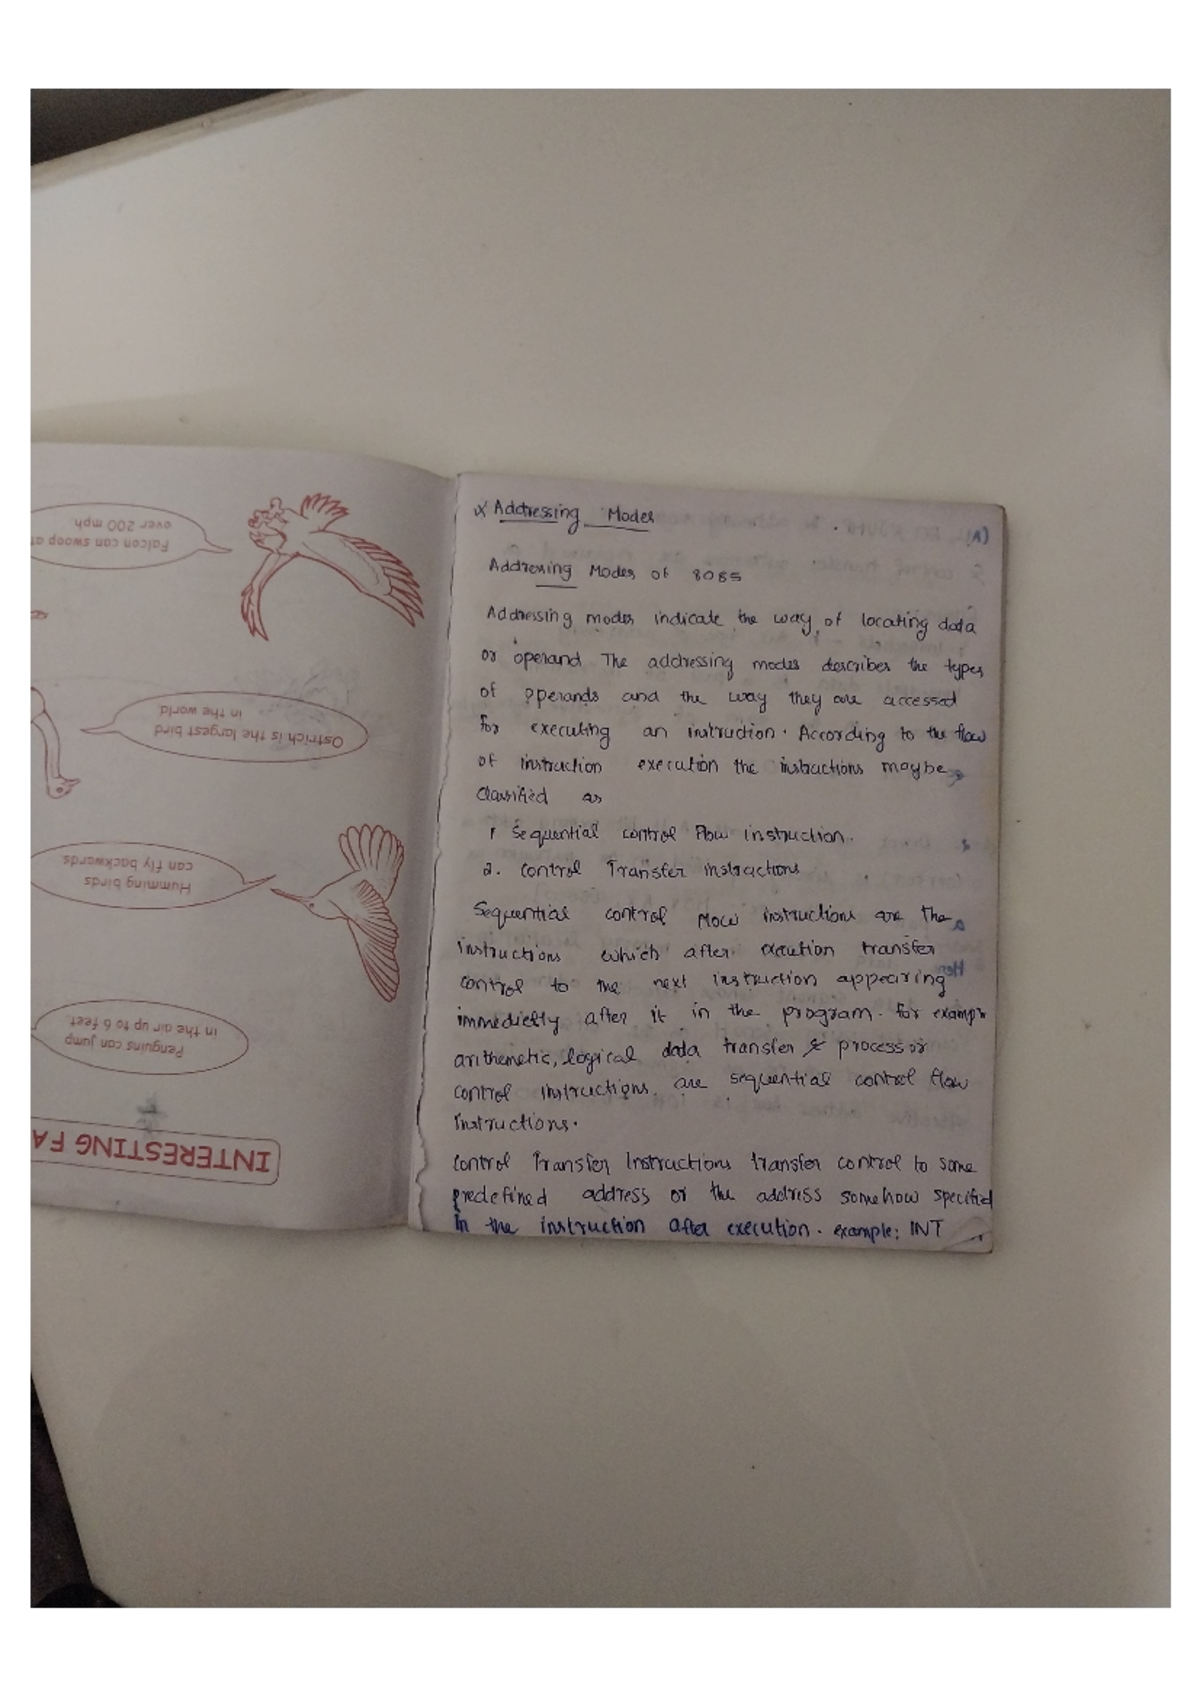 Addressing Modes
Addressing Modes of 8085
Addressing modes indicate the way of locating data
or operand The addressing modes describes the types
of operands and the way they are accessed
for executing an instruction. According to the flow
of instruction execution the instructions maybe
classified as
1 Sequential control flow instruction.
2. control Transfer instructions
Sequential control flow instructions are the
instructions which after execution transfer
control to the next instruction appearing
immedietly after it in the program. for example
arithemetic, logical data transfer & processor
control instructions, are sequential control flow
instructions.
control Transfer Instructions transfer control to some
predefined address or the address somehow specified
in the instruction after execution. example: INT
INTERESTING FA
Penguins can jump
in the air up to 6 feet
Humming birds
can fly backwards
Ostrich is the largest bird
in the world
Falcon can swoop at
over 200 mph